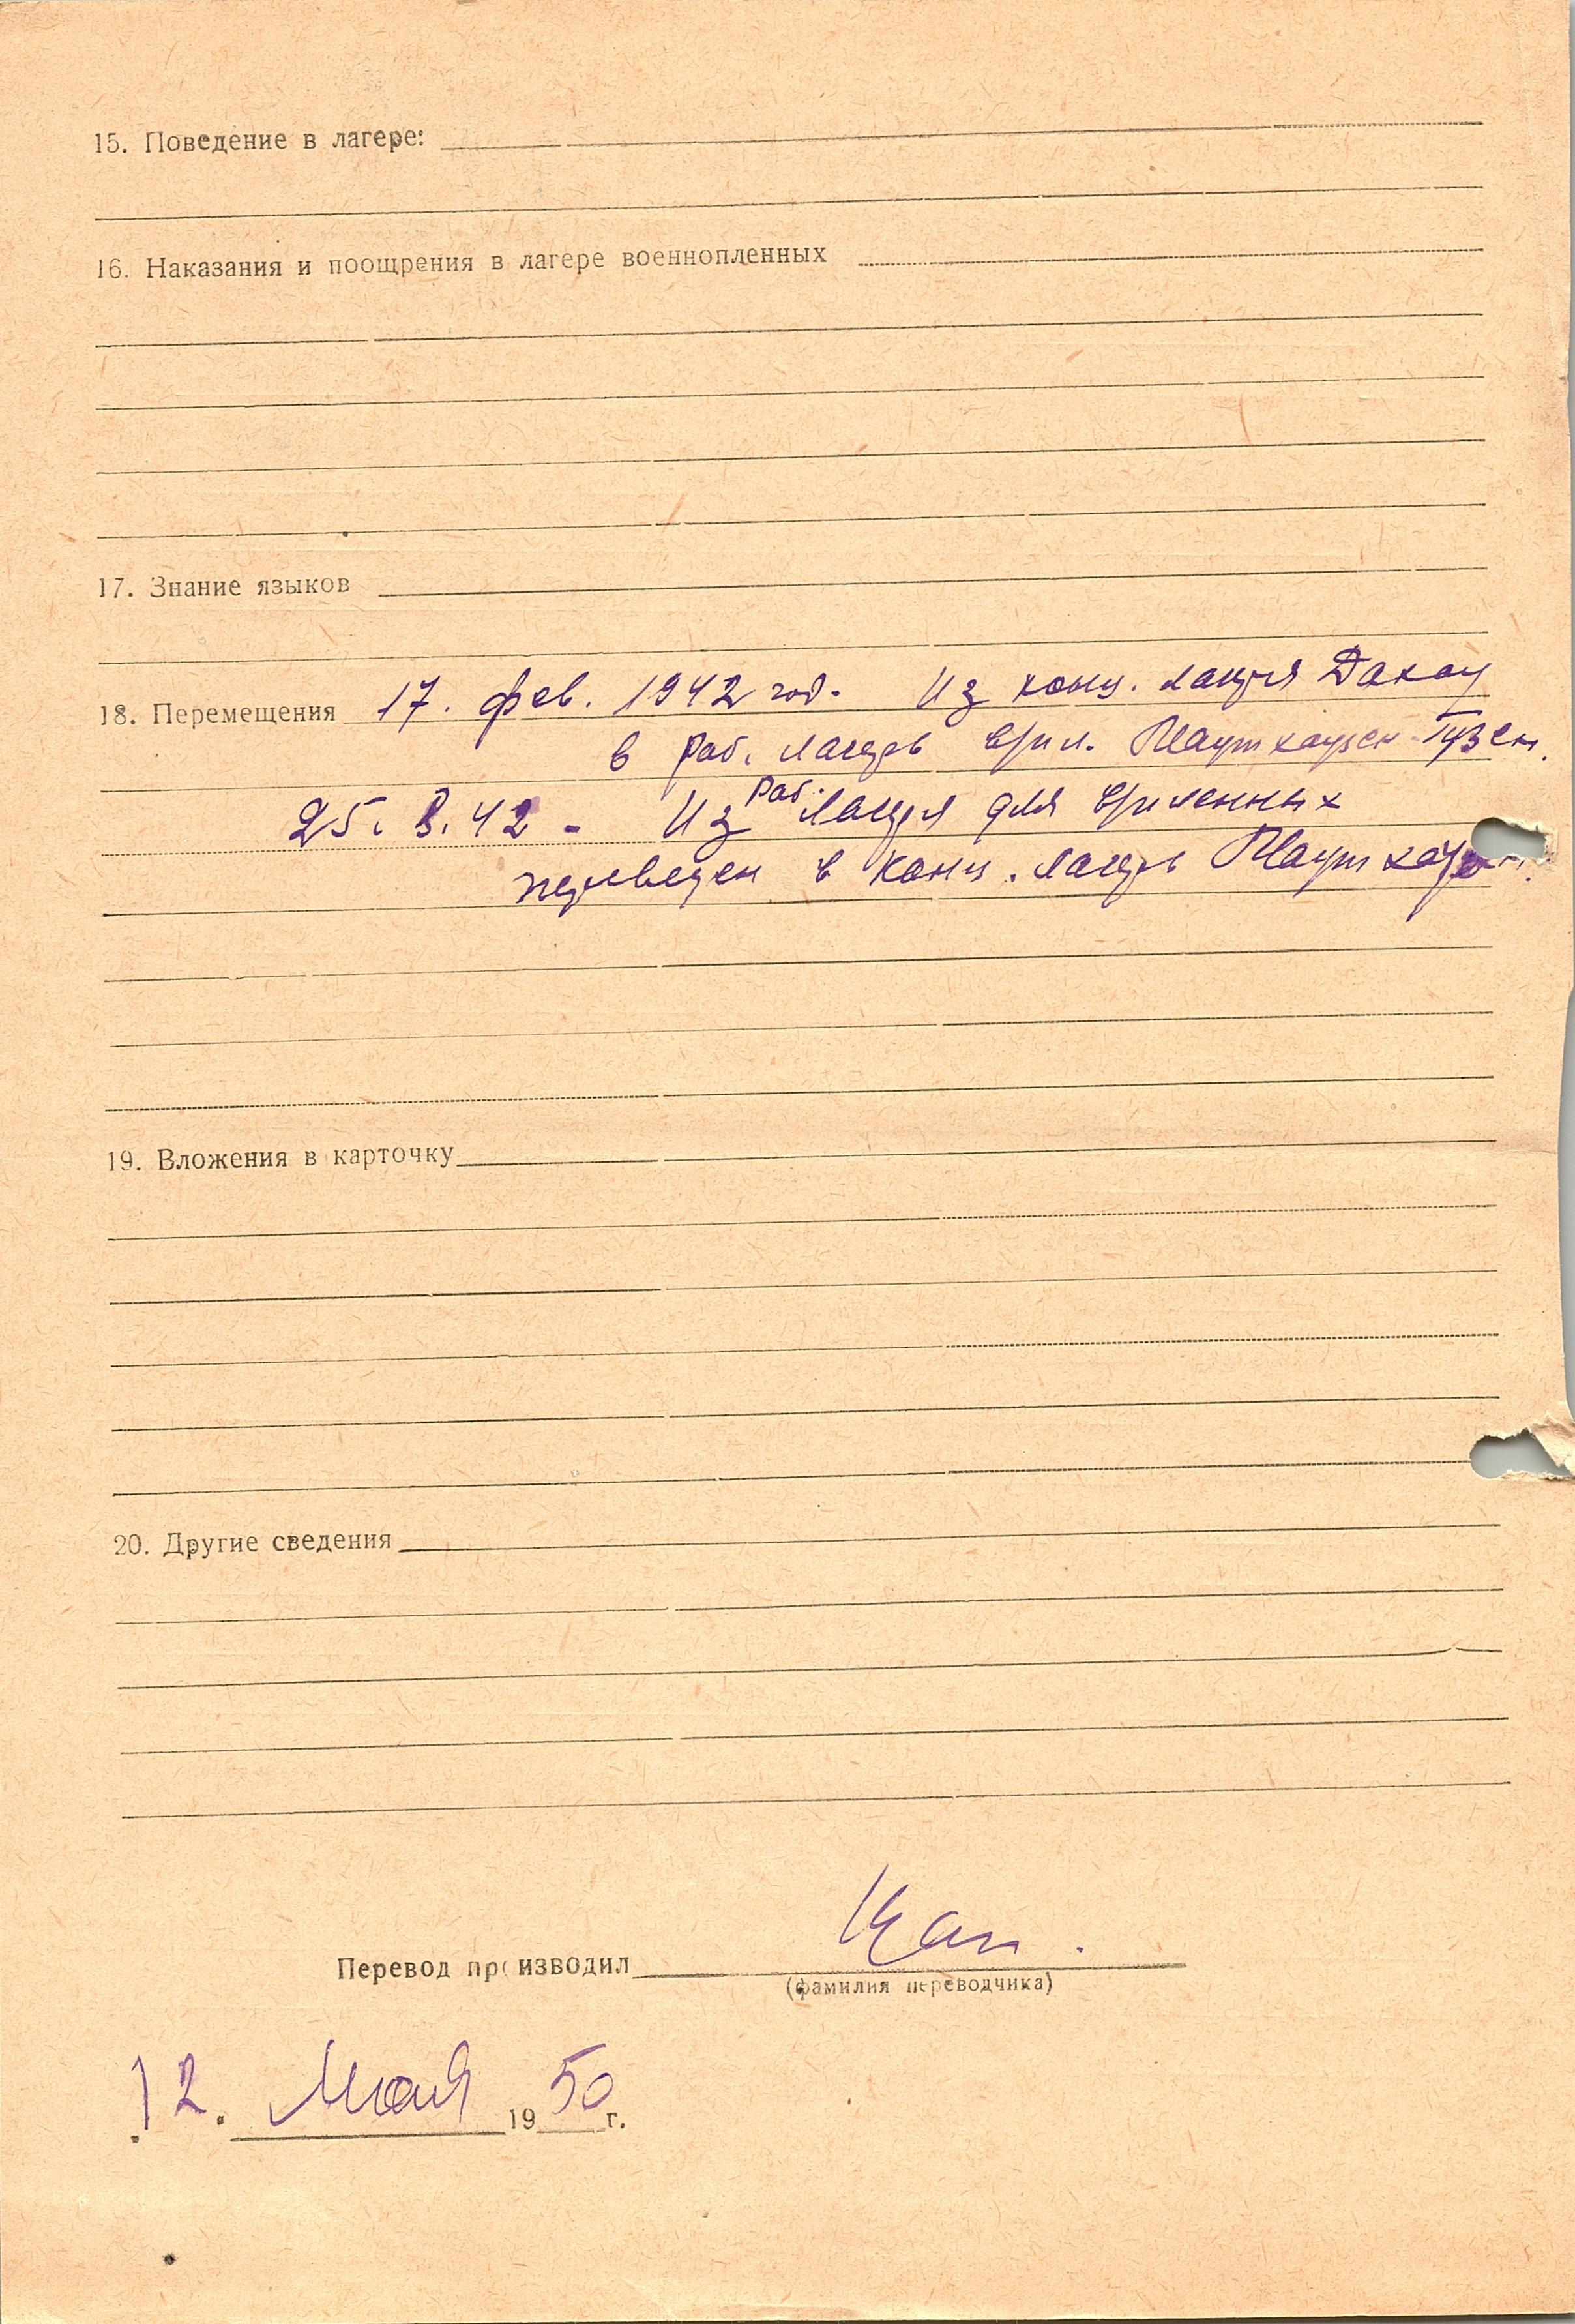 15. Поведение в лагере:
16. Наказания и поощрения в лагере военнопленных
17. Знание языков
18. Перемещения 17. фев. 1942 год. Из конц. лагеря Дахау
в раб. лагерь Маутхаузен-Гузен.
25. 3. 42 - Из раб. лагеря для
переведен в конц. лагерь Маутхаузен.
19. Вложения в карточку
20. Другие сведения
Перевод производил
(фамилия переводчика)
12. Мая 1950 г.